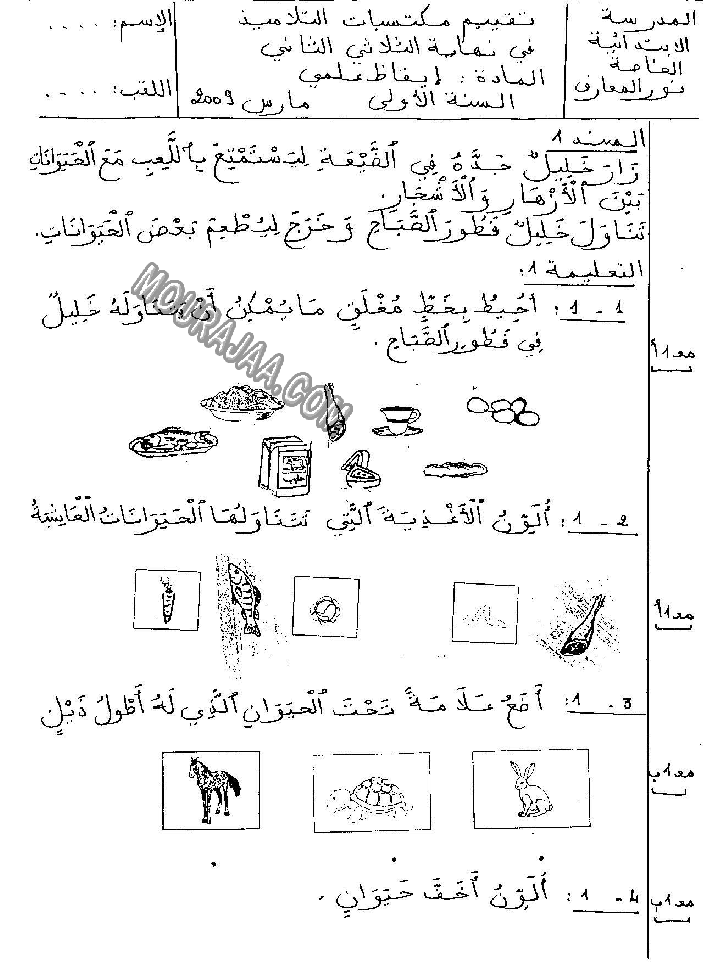 المدرسة
الابتدائية
الخاصة
نور المعارف
تقييم مكتسبات التلاميذ
في نهاية الثلاثي الثاني
المادة : إيقاظ علمي
السنة الأولى مارس 2009
الإسم: ....
اللقب: ....
السند 1
زَارَ خَلِيلٌ جَدَّهُ فِي الضَّيْعَةِ لِيَسْتَمْتِعَ بِاللَّعِبِ مَعَ الْحَيَوَانَاتِ
بَيْنَ الْأَزْهَارِ وَالْأَشْجَارِ.
تَنَاوَلَ خَلِيلٌ فَطُورَ الصَّبَاحِ وَ خَرَجَ لِيُطْعِمَ بَعْضَ الْحَيَوَانَاتِ.
التعليمة 1:
1 - 1 : أُحِيطُ بِخَطٍّ مُغْلَقٍ مَا يُمْكِنُ أَنْ يَتَنَاوَلَهُ خَلِيلٌ
فِي فَطُورِ الصَّبَاحِ .
مع 1 أ
حليب
1 - 2 : أُلَوِّنُ الْأَغْذِيَةَ الَّتِي تَتَنَاوَلُهَا الْحَيَوَانَاتُ الْعَاشِبَةُ
مع 1 أ
1 - 3 : أَضَعُ عَلَامَةً تَحْتَ الْحَيَوَانِ الَّذِي لَهُ أَطْوَلُ ذَيْلٍ
مع 1 ب
1 - 4 : أُلَوِّنُ أَخَفَّ حَيَوَانٍ .
مع 1 ب
MOURAJAA.COM